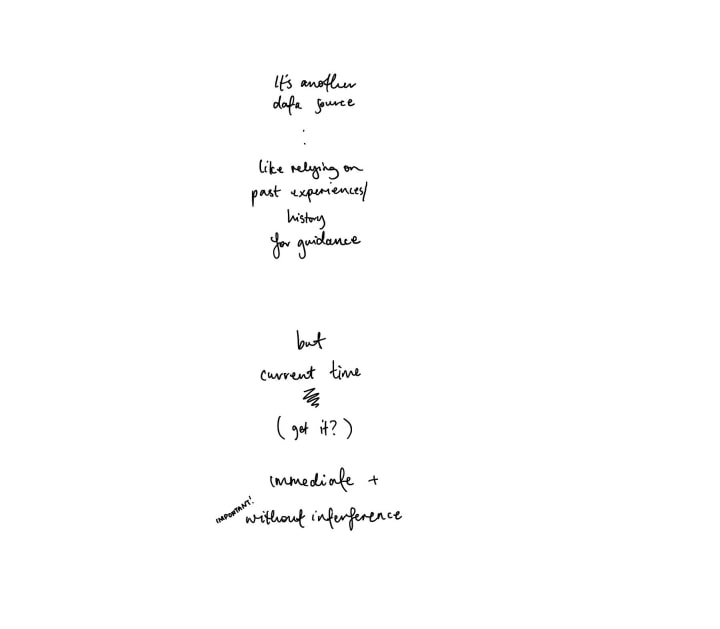 It's another
data source
:
like relying on
past experiences/
history
for guidance
but
current time
(get it?)
immediate +
IMPORTANT!
without inference